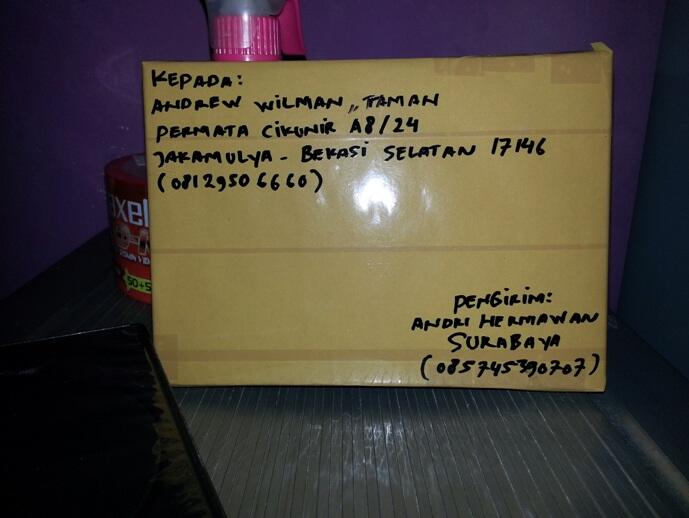 KEPADA:
ANDREW WILMAN,, TAMAN
PERMATA CIKUNIR A8/24
JAKAMULYA - BEKASI SELATAN 17146
(081295066660)
PENGIRIM:
ANDRI HERMAWAN
SURABAYA
(085745390707)
axel
50+5